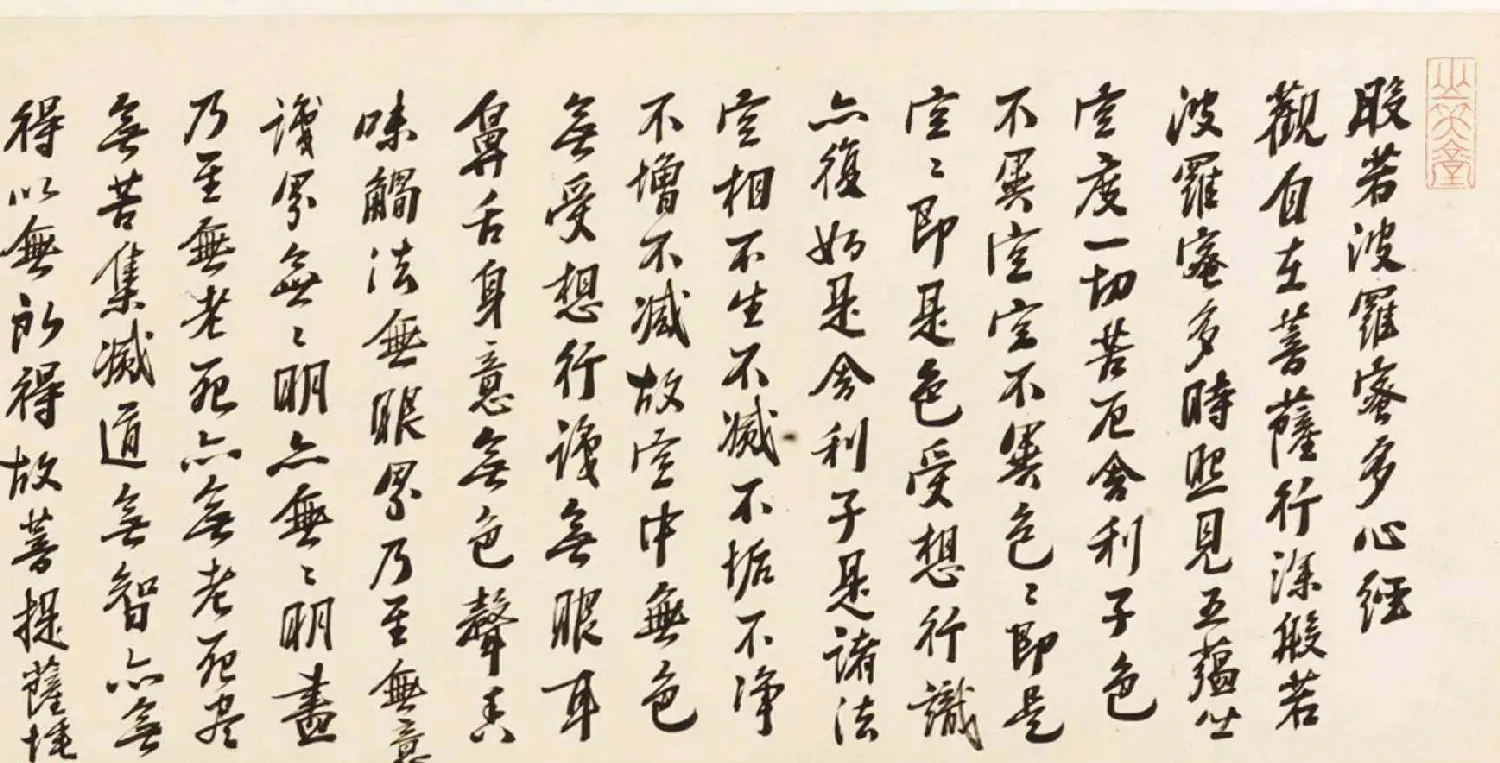 般若波羅蜜多心經
觀自在菩薩行深般若
波羅蜜多時照見五蘊皆
空度一切苦厄舍利子色
不異空空不異色〻即是
空〻即是色受想行識
亦復如是舍利子是諸法
空相不生不滅不垢不淨
不增不減故空中無色
無受想行識無眼耳
鼻舌身意無色聲香
味觸法無眼界乃至無意
識界無〻明亦無〻明盡
乃至無老死亦無老死尽
無苦集滅道無智亦無
得以無所得故菩提薩埵